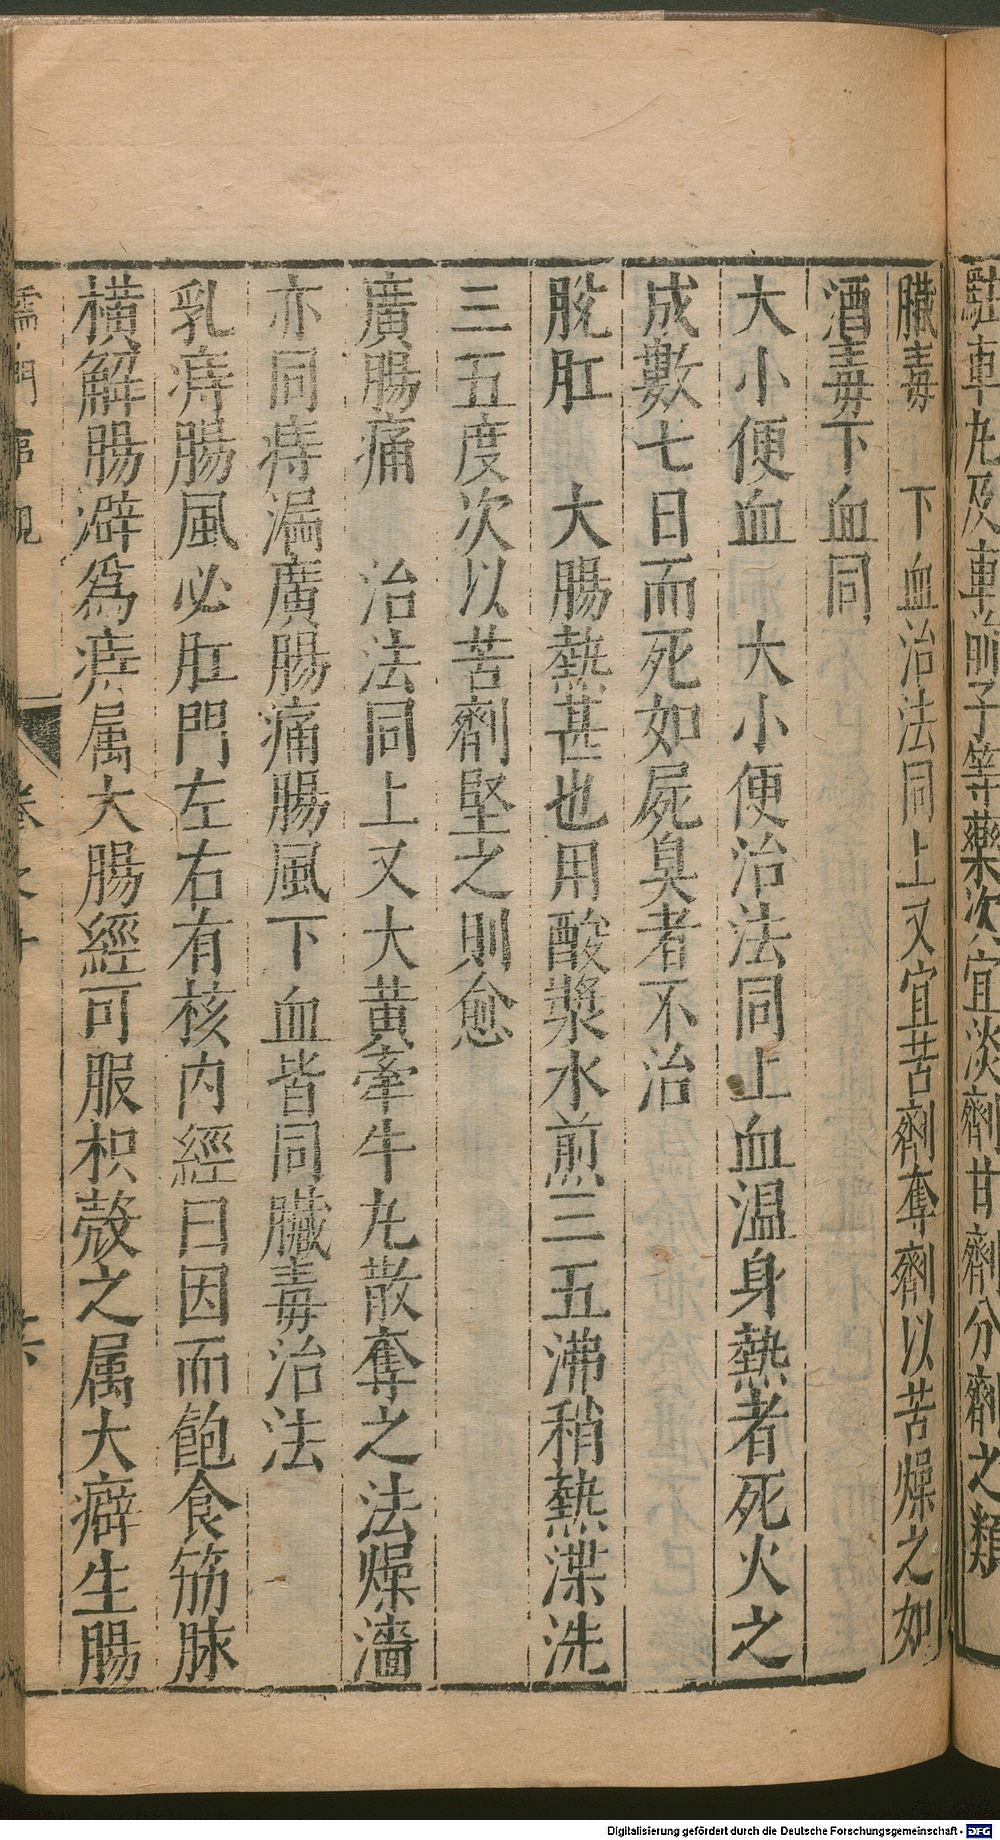 駐車丸及車前子等藥次宜淡劑甘劑分劑之類
臟毒　下血治法同上又宜苦劑奪劑以苦燥之如
酒毒下血同
大小便血　大小便治法同上血温身熱者死火之
成數七日而死如屍臭者不治
脫肛　大腸熱甚也用酸漿水煎三五沸稍熱渫洗
三五度次以苦劑堅之則愈
廣腸痛　治法同上又大黃牽牛丸散奪之法燥濇
亦同痔漏廣腸痛腸風下血皆同臟毒治法
乳痔腸風必肛門左右有核內經曰因而飽食筋脉
橫解腸澼爲痔属大腸經可服枳殼之属大癖生腸
儒門事親　卷之十　六
Digitalisierung gefördert durch die Deutsche Forschungsgemeinschaft - DFG